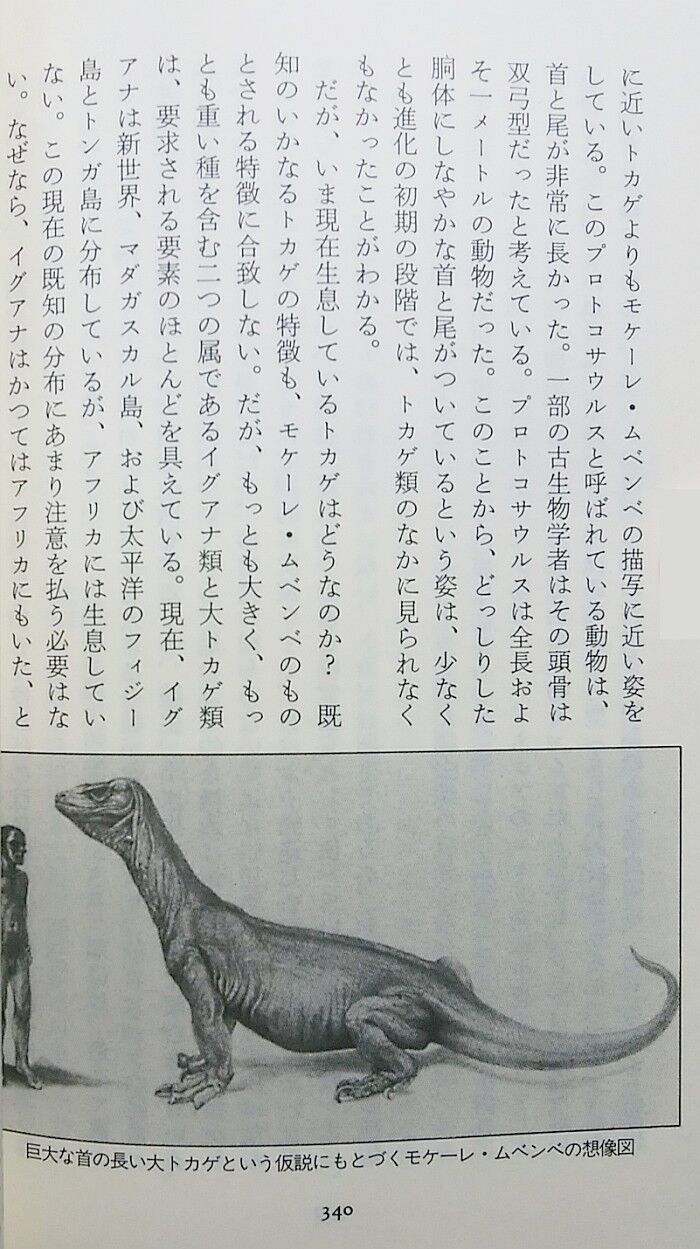 に近いトカゲよりもモケーレ・ムベンベの描写に近い姿を
している。このプロトコサウルスと呼ばれている動物は、
首と尾が非常に長かった。一部の古生物学者はその頭骨は
双弓型だったと考えている。プロトコサウルスは全長およ
そ一メートルの動物だった。このことから、どっしりした
胴体にしなやかな首と尾がついているという姿は、少なく
とも進化の初期の段階では、トカゲ類のなかに見られなく
もなかったことがわかる。
だが、いま現在生息しているトカゲはどうなのか？　既
知のいかなるトカゲの特徴も、モケーレ・ムベンベのもの
とされる特徴に合致しない。だが、もっとも大きく、もっ
とも重い種を含む二つの属であるイグアナ類と大トカゲ類
は、要求される要素のほとんどを具えている。現在、イグ
アナは新世界、マダガスカル島、および太平洋のフィジー
島とトンガ島に分布しているが、アフリカには生息してい
ない。この現在の既知の分布にあまり注意を払う必要はな
い。なぜなら、イグアナはかつてはアフリカにもいた、と
巨大な首の長い大トカゲという仮説にもとづくモケーレ・ムベンベの想像図
340